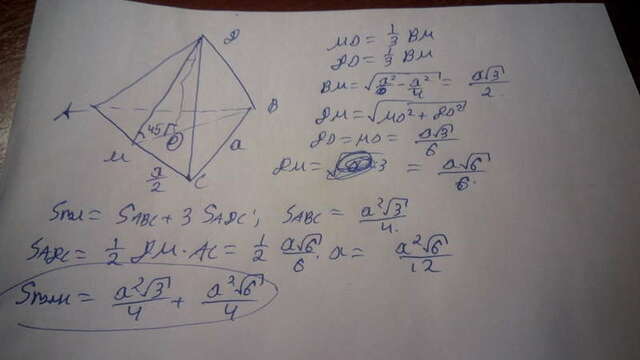 D
A
B
45°
O
M
a
a/2
C
MO = 1/3 BM
DO = 1/3 BM
BM = √(a²/6 - a²/4) = a√3/2
DM = √(MO² + DO²)
DO = MO = a√3/6
DM = = a√6/6
Sпол = SABC + 3 SADC; SABC = a²√3/4
SADC = 1/2 DM · AC = 1/2 a√6/6 · a = a²√6/12
Sполн = a²√3/4 + a²√6/4